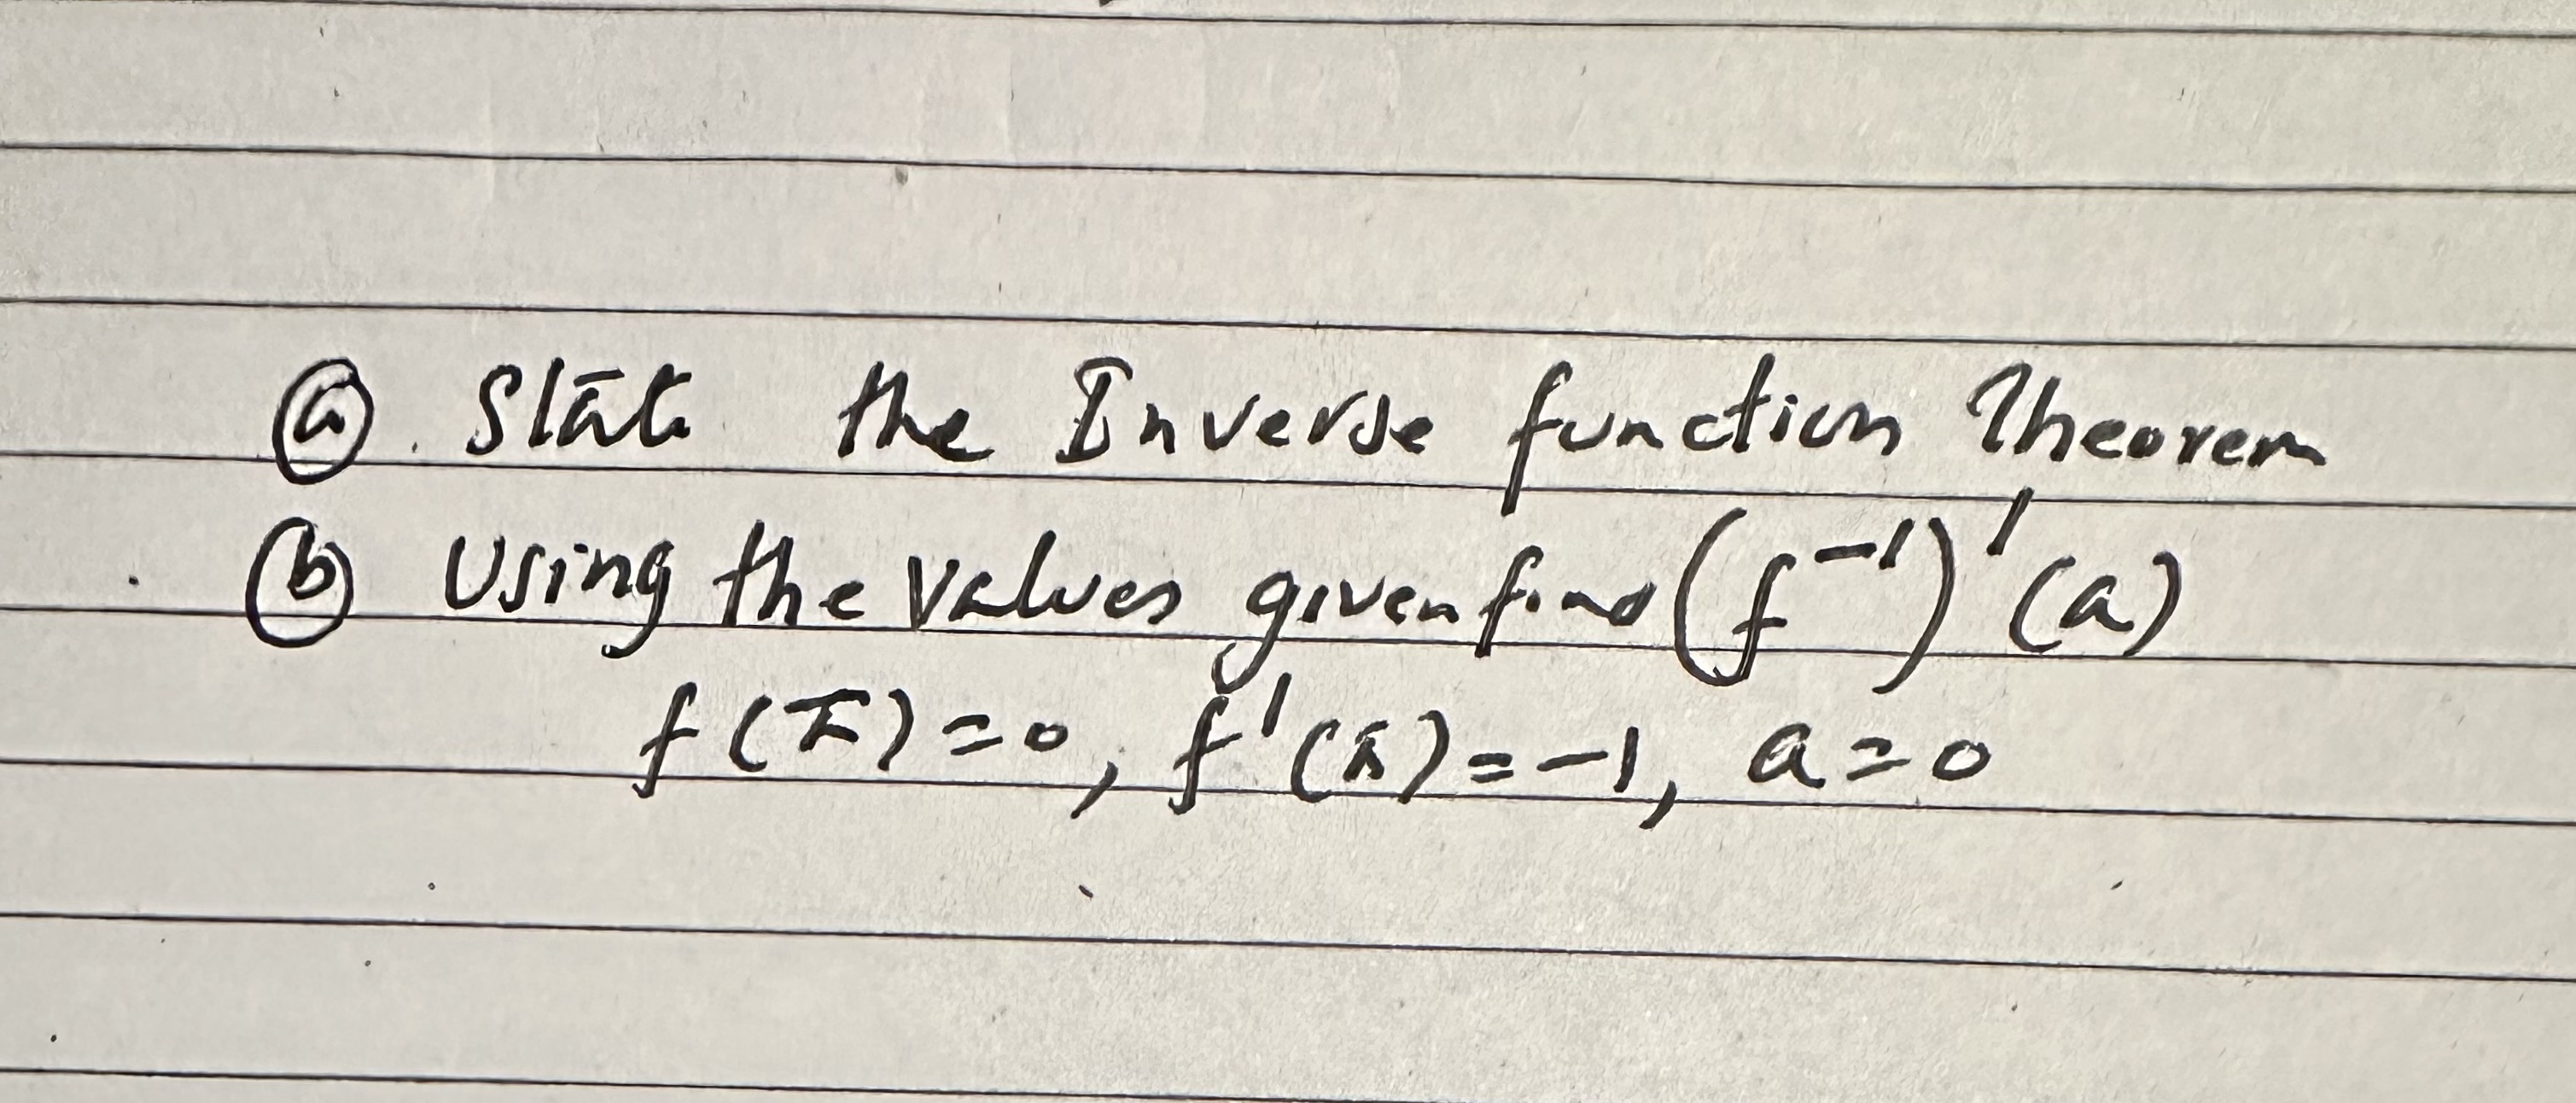 ⓐ. State the Inverse function Theorem
ⓑ Using the values given find (f⁻¹)'(a)
f(π)=0, f'(π)=-1, a=0